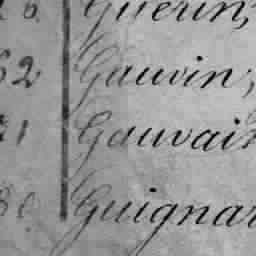 Guerin,
62 Gauvin,
71 Gauvain
80 Guignar